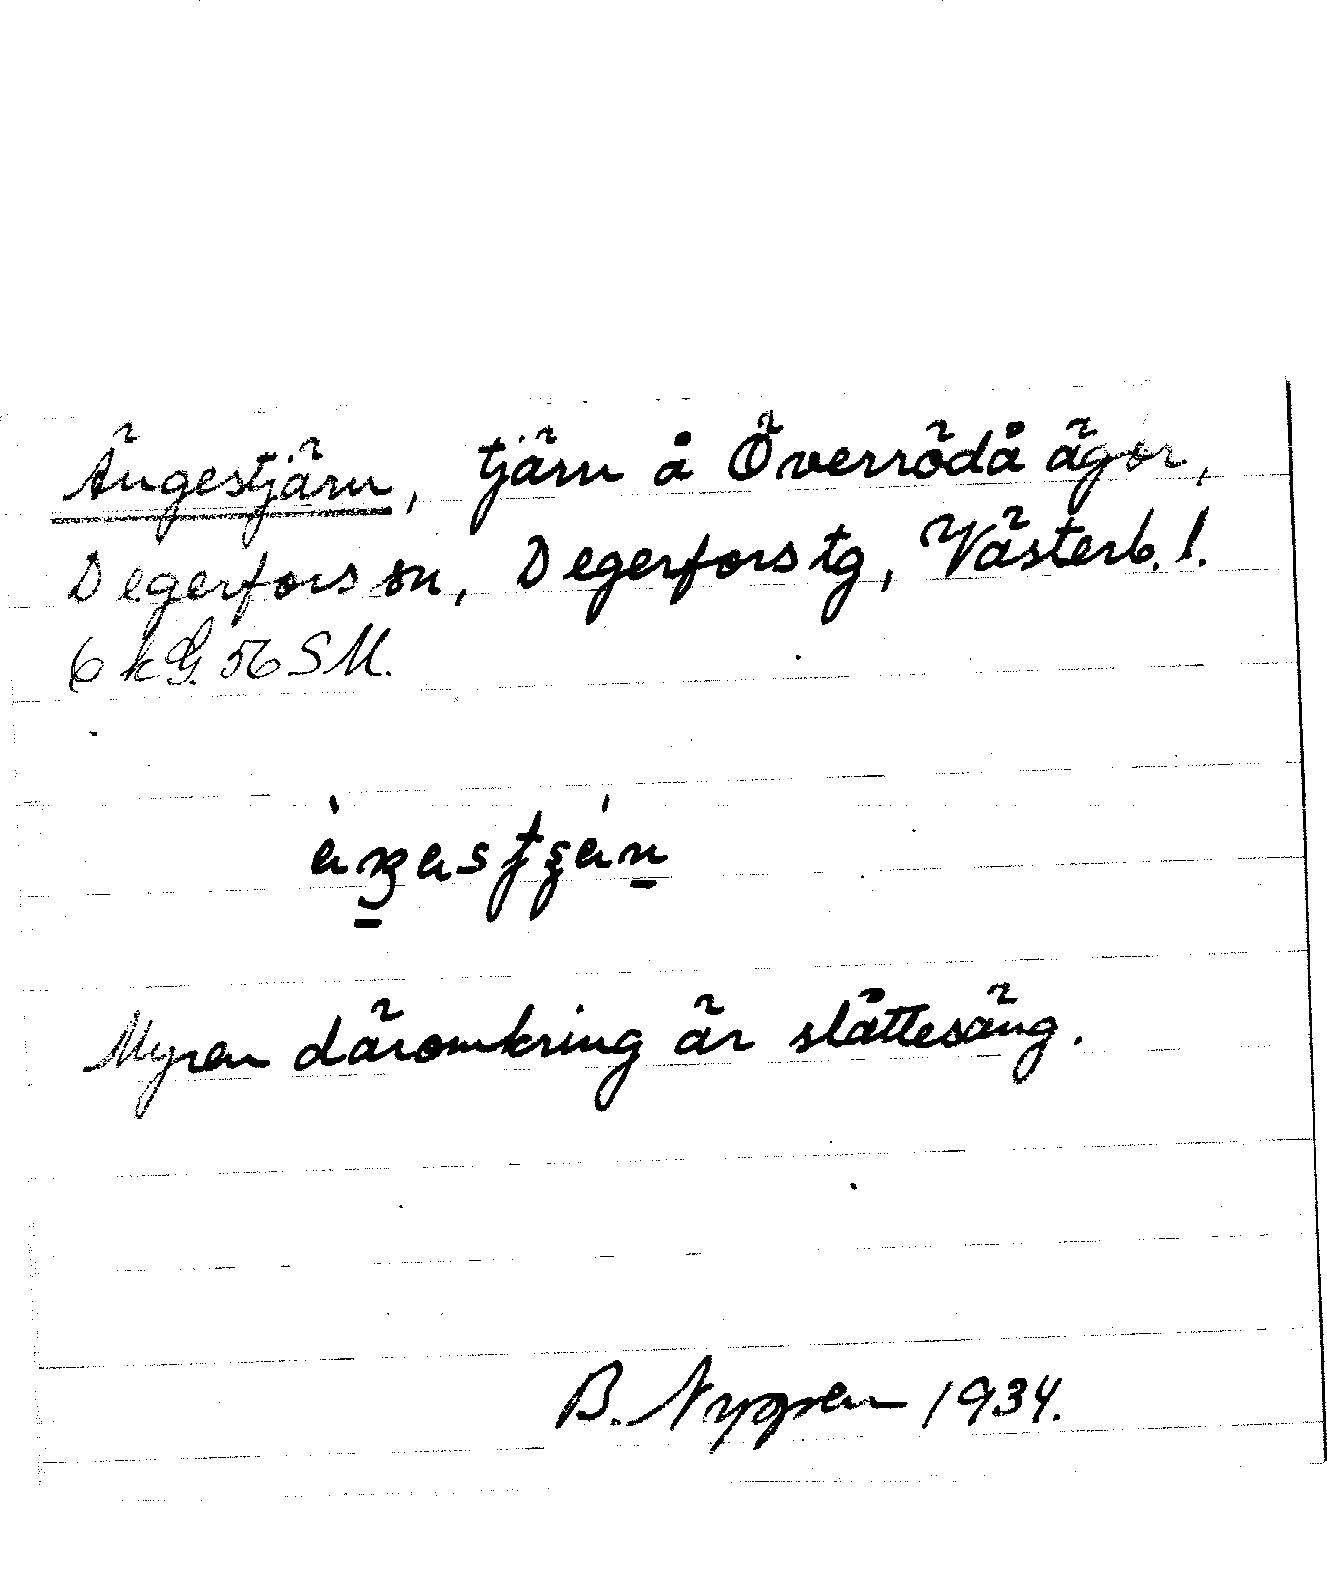 Ängestjärn, tjärn å Överrödå ägor,
Degerfors sn, Degerfors tg, Västerb. l.
6 kG. 56 SM.
Myren däromkring är slåttesäng.
B. Nygren 1934.